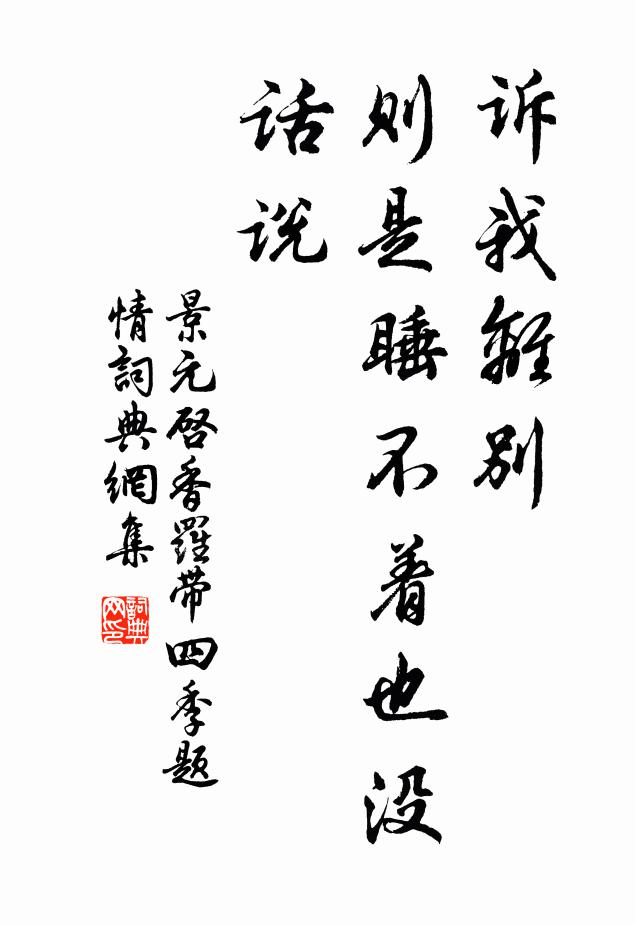 诉我離别
则是睡不着也没
话说
景元启香羅带四季题
情詞典網集
詞典网印